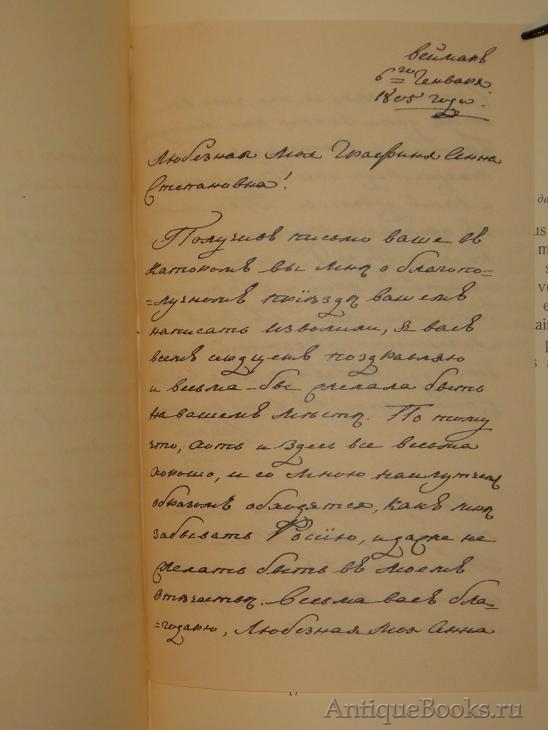 Веймаръ
6го Генваря
1805 года.
Любезная Моя Графиня Анна
Степановна!
Получивъ письмо ваше въ
катопомъ вы мнѣ о благопо=
=лучномъ пріѣздѣ вашемъ
написать изволили, я васъ
всемъ сердценъ поздравляю
и весьма-бы желала быть
на вашемъ мѣстѣ. По тому
что, хоть и здесь все весьма
хорошо, и со мною наилутчемъ
образомъ обходятся, какъ мнѣ
забывать Росїю, и даже не
желать быть въ моемъ
отѣчествѣ. Весьма васъ бла=
=годарю, Любезная Моя Анна
17
AntiqueBooks.ru